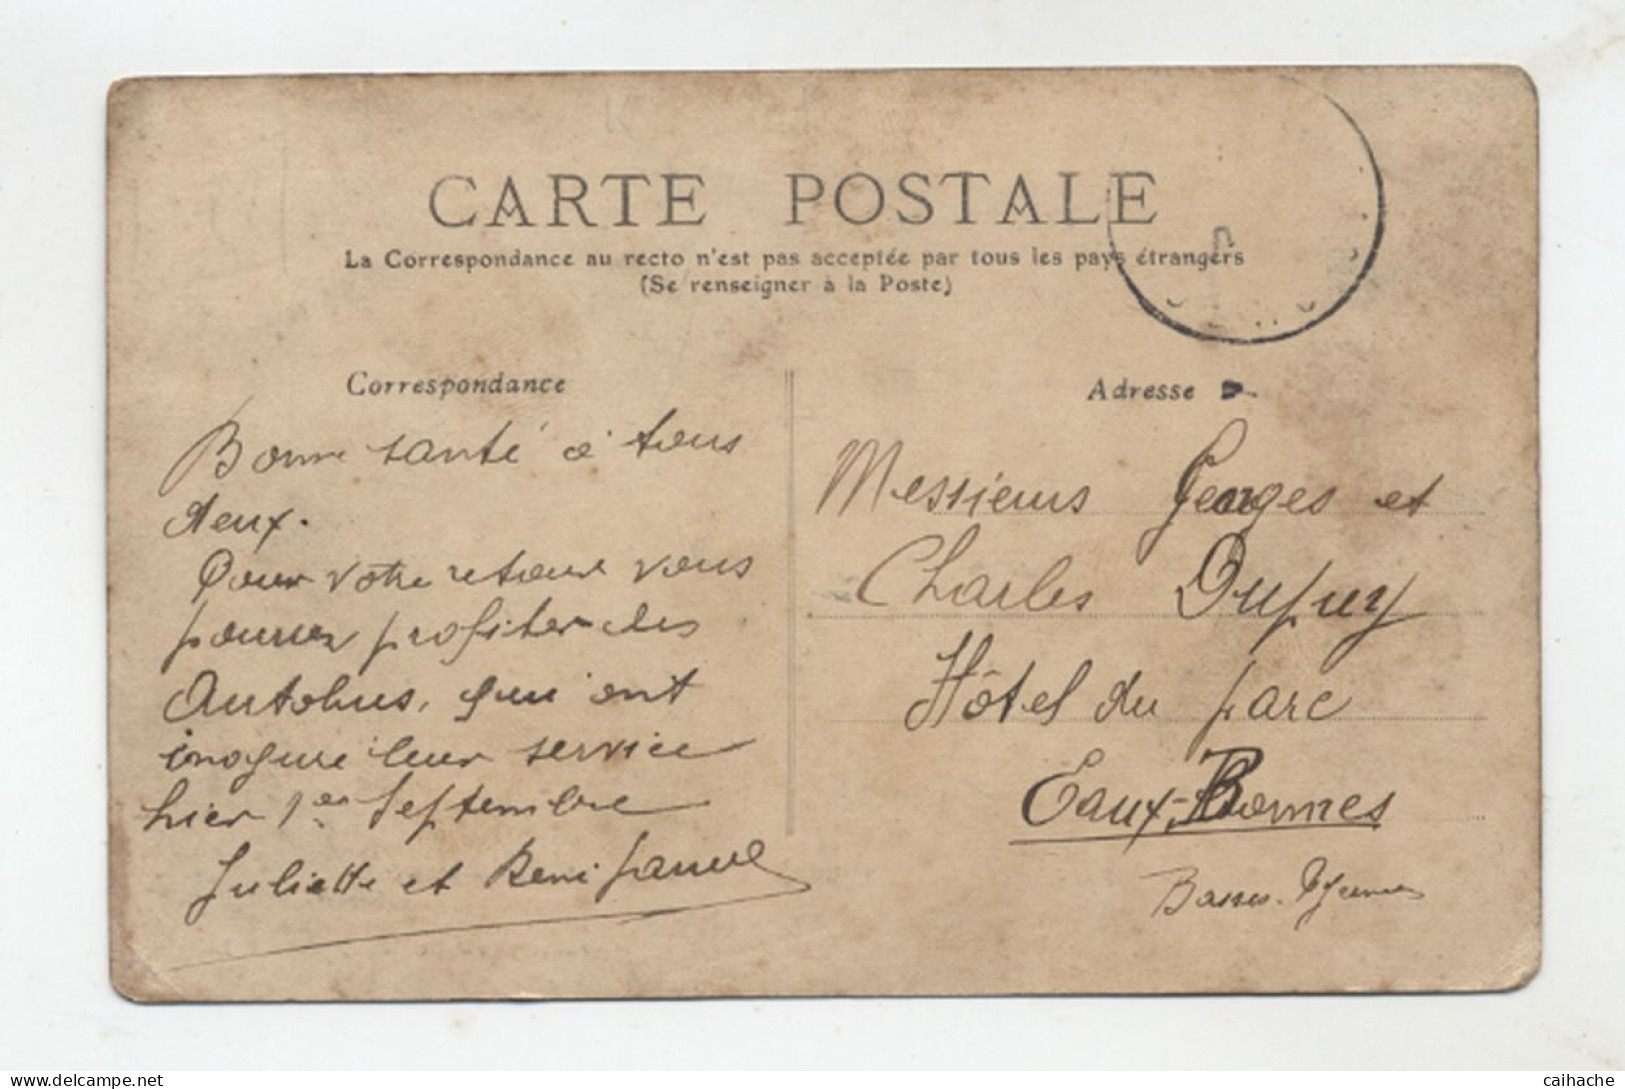 CARTE POSTALE
La Correspondance au recto n'est pas acceptée par tous les pays étrangers
(Se renseigner à la Poste)
Correspondance
Bonne santé à tous
deux.
Pour votre retour vous
pourrez profiter des
Autobus, qui ont
inoguré leur service
hier 1er Septembre
Juliette et René
Adresse
Messieurs Georges et
Charles Dupuy
Hôtel du parc
Eaux-Bonnes
Basses-Pyrénées
caihache